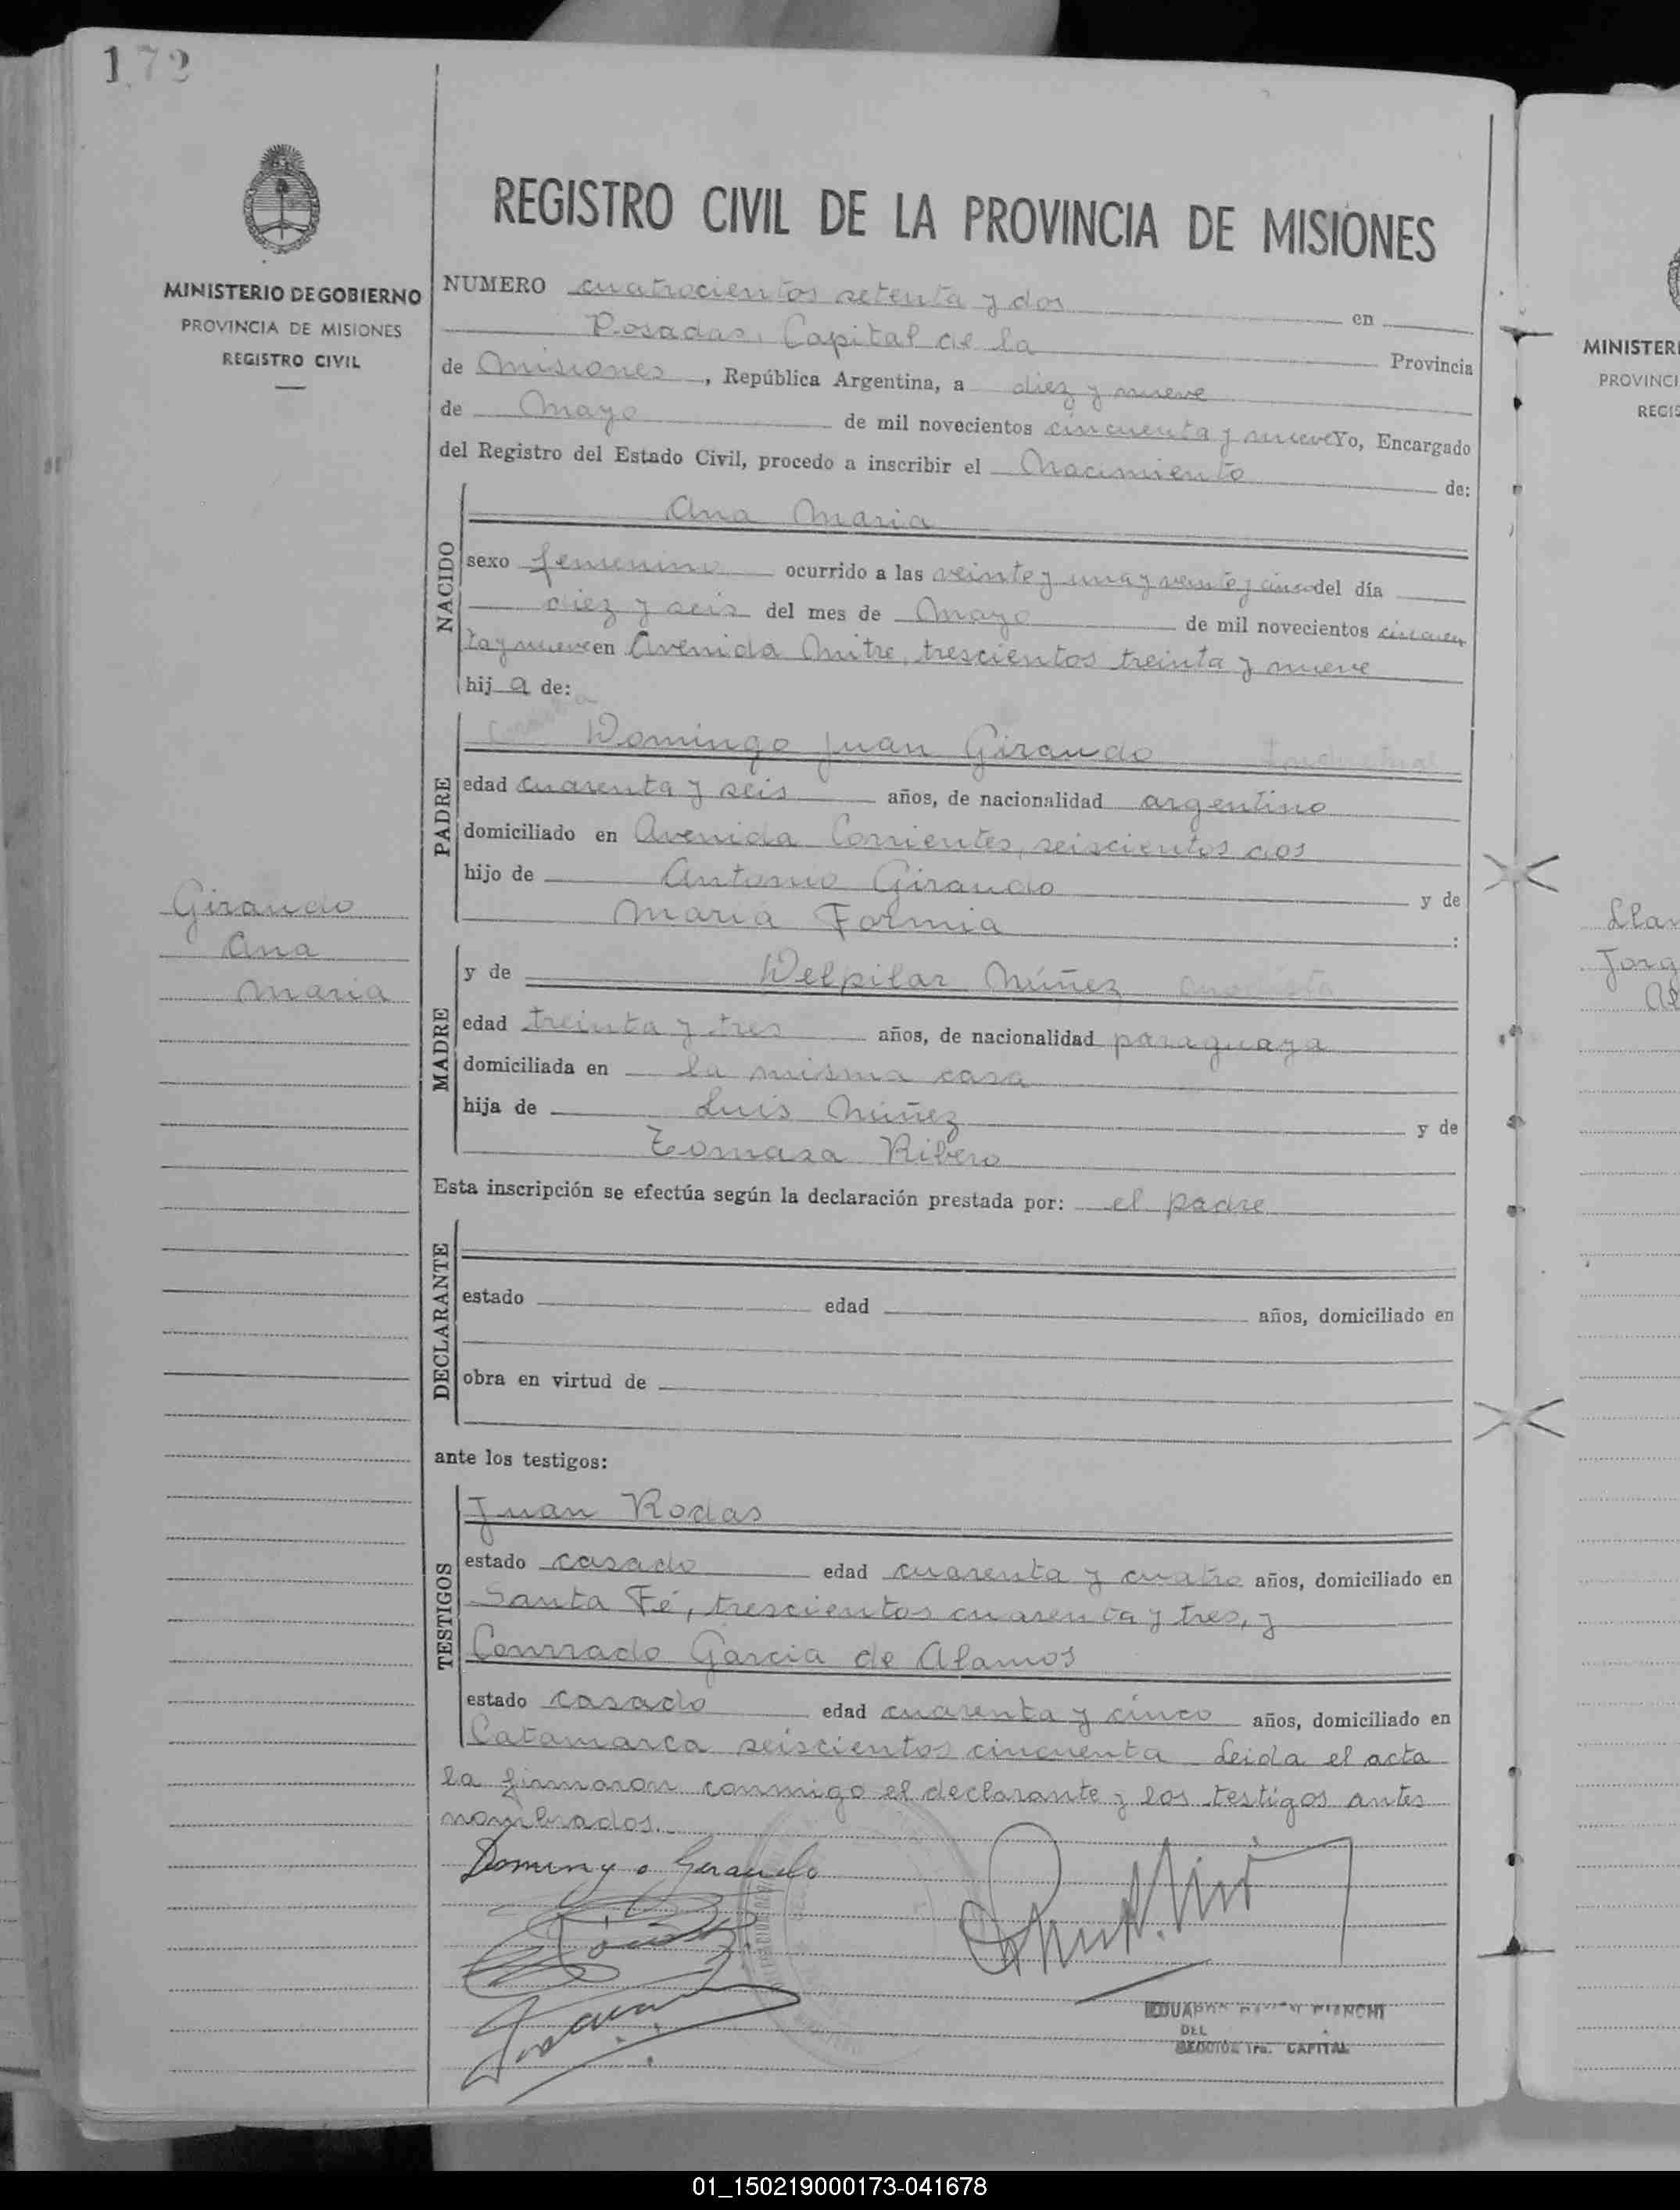 172
REGISTRO CIVIL DE LA PROVINCIA DE MISIONES
MINISTERIO DE GOBIERNO
PROVINCIA DE MISIONES
REGISTRO CIVIL
NUMERO cuatrocientos setenta y dos en
Posadas, Capital de la Provincia
de Misiones, República Argentina, a diez y nueve
de Mayo de mil novecientos cincuenta y nueve Yo, Encargado
del Registro del Estado Civil, procedo a inscribir el Nacimiento de:
NACIDO
Ana Maria
sexo femenino ocurrido a las veinte y una y veinte y cinco del día
diez y seis del mes de Mayo de mil novecientos cincuen
ta y nueve en Avenida Mitre, trescientos treinta y nueve
hija de:
PADRE
Domingo Juan Giraudo Industrial
edad cuarenta y seis años, de nacionalidad argentino
domiciliado en Avenida Corrientes, seiscientos dos
hijo de Antonio Giraudo y de
Maria Formia :
Giraudo
Ana
Maria
MADRE
y de Delpilar Núñez Modista
edad treinta y tres años, de nacionalidad paraguaya
domiciliada en la misma casa
hija de Luis Núñez y de
Tomasa Ribero
Esta inscripción se efectúa según la declaración prestada por: el padre
DECLARANTE
estado edad años, domiciliado en
obra en virtud de
ante los testigos:
TESTIGOS
Juan Rodas
estado casado edad cuarenta y cuatro años, domiciliado en
Santa Fé, trescientos cuarenta y tres, y
Conrrado Garcia de Alamos
estado casado edad cuarenta y cinco años, domiciliado en
Catamarca seiscientos cincuenta Leida el acta
la firmaron conmigo el declarante y los testigos antes
nombrados.
Domingo Giraudo
EDUARDO BIANCHI
DEL
SECCIÓN 1ra. CAPITAL
MINISTERI
PROVINCI
REGIS
Llan
Jorg
Al
01_150219000173-041678